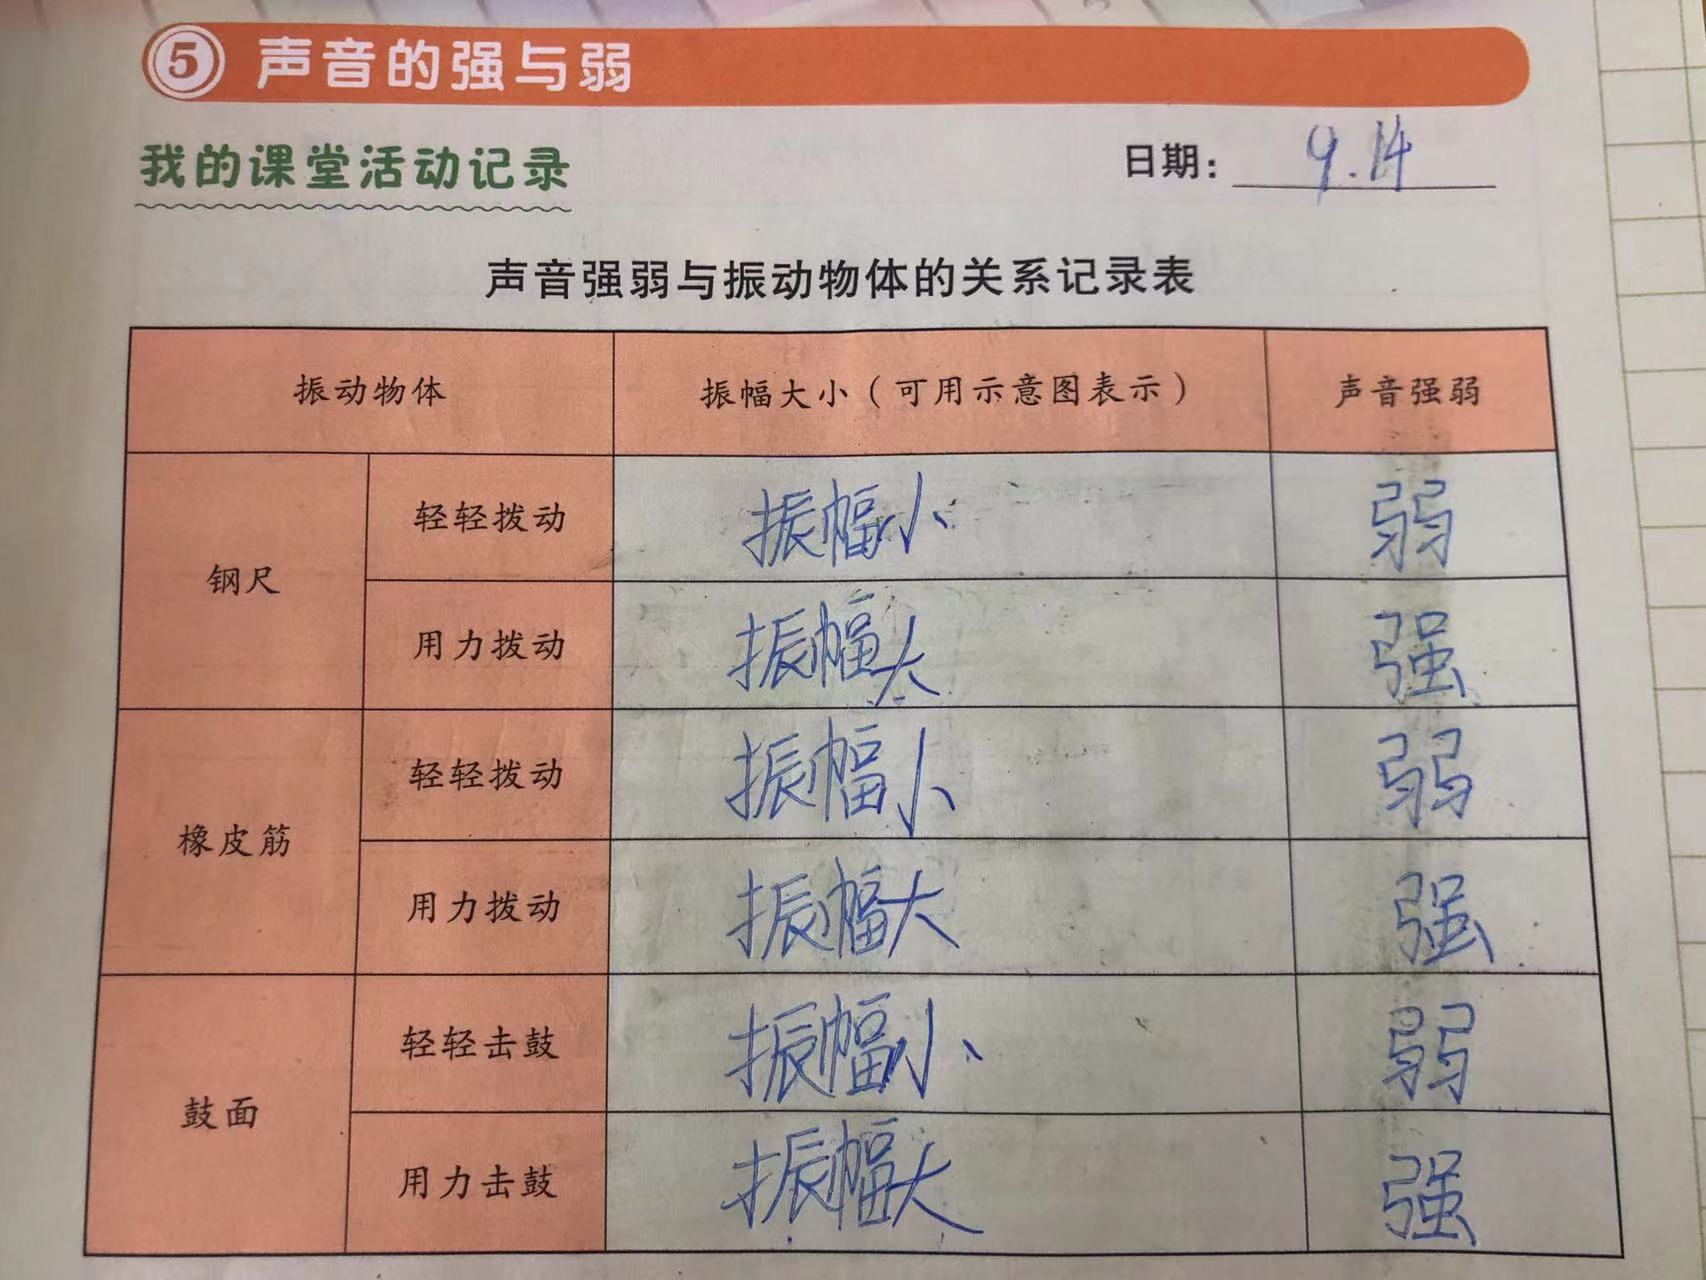 5 声音的强与弱
我的课堂活动记录
日期: 9.14
声音强弱与振动物体的关系记录表
振动物体 振幅大小（可用示意图表示） 声音强弱
钢尺 轻轻拨动 振幅小 弱
用力拨动 振幅大 强
橡皮筋 轻轻拨动 振幅小 弱
用力拨动 振幅大 强
鼓面 轻轻击鼓 振幅小 弱
用力击鼓 振幅大 强